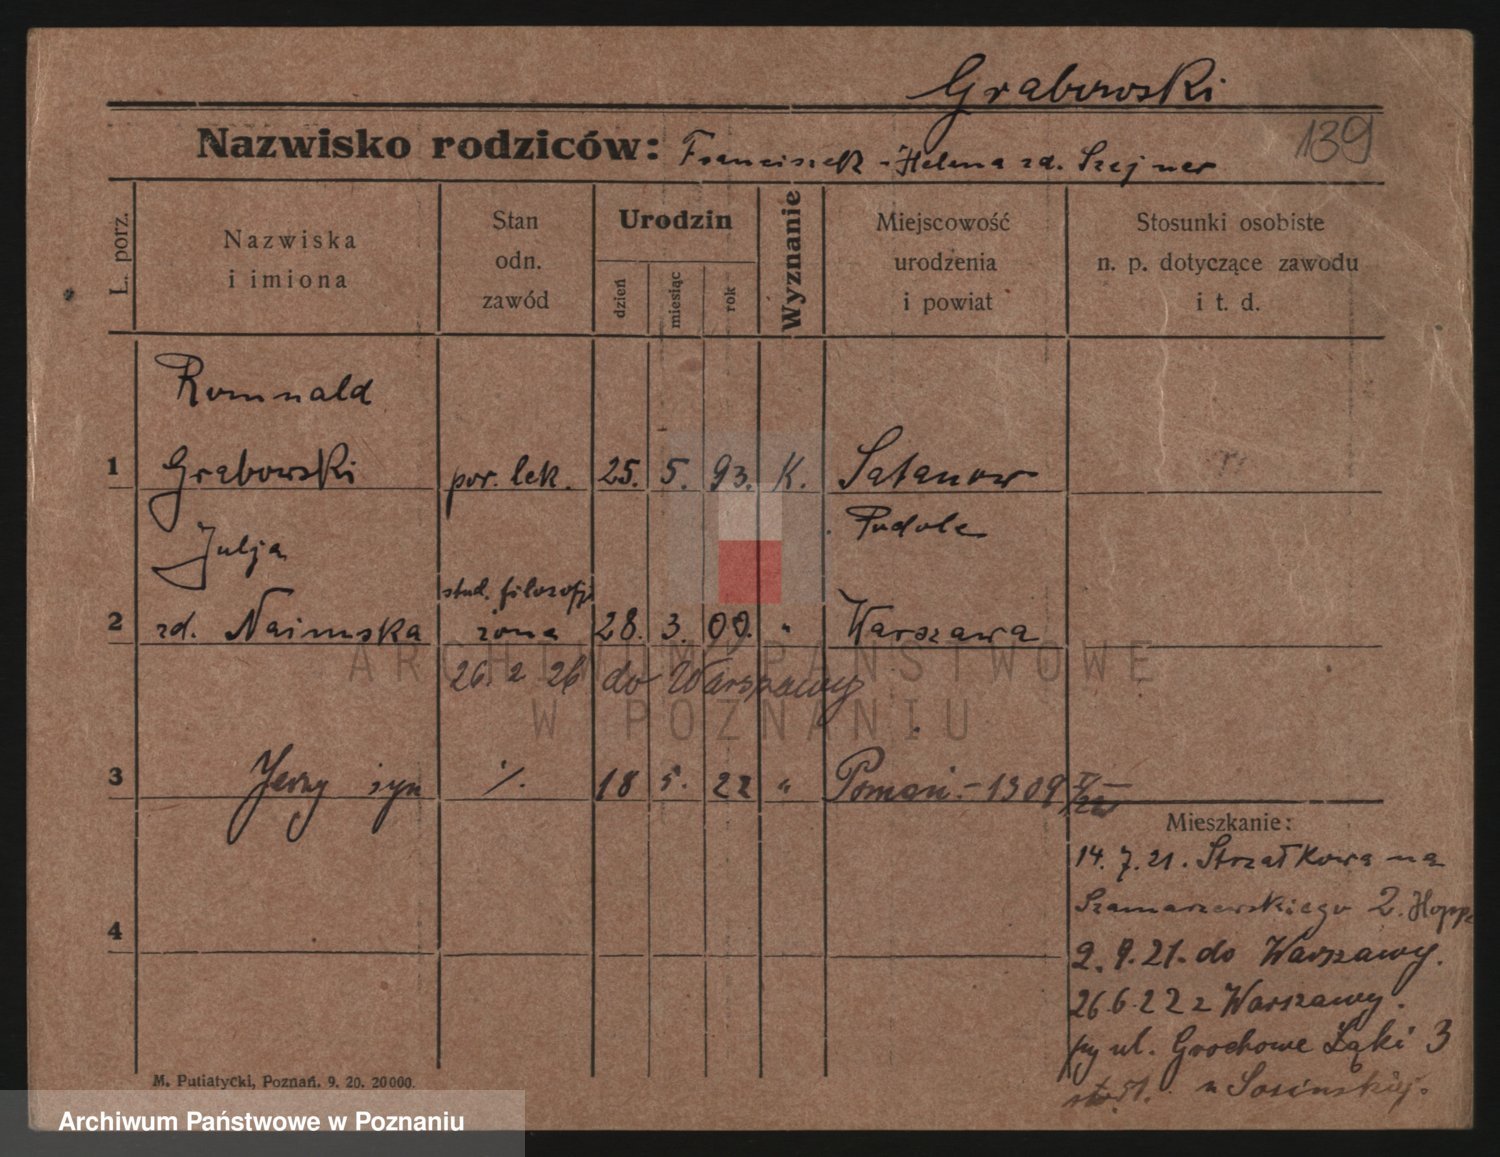 Grabowski
139
Nazwisko rodziców: Franciszek - Helena zd. Szejner
L. porz.
Nazwiska i imiona
Stan odn. zawód
Urodzin
dzień
miesiąc
rok
Wyznanie
Miejscowość urodzenia i powiat
Stosunki osobiste n. p. dotyczące zawodu i t. d.
Romuald
1 Grabowski por. lek. 25. 5. 93. K. Satanow
Podole
Julja
stud. filozofji
2 zd. Naimska żona 28. 3. 00. " Warszawa
26. 2 26 do Warszawy
3 Jerzy syn ·/. 18 5. 22 " Poznań - 1309
Mieszkanie:
14. 7. 21. Strzałkowa na
4 Szamarzewskiego 2. Hoppe
2. 9. 21. do Warszawy.
26. 6. 22 z Warszawy.
py ul. Grochowe Łąki 3
u Sosińskiej.
M. Putiatycki, Poznań. 9. 20. 20000.
ARCHIWUM PAŃSTWOWE
W POZNANIU
Archiwum Państwowe w Poznaniu